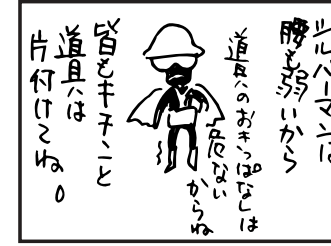 シルバーマンは
腰も弱いから
道具のおきっぱなしは
危ない
からね
皆もキチンと
道具は
片付けてね。